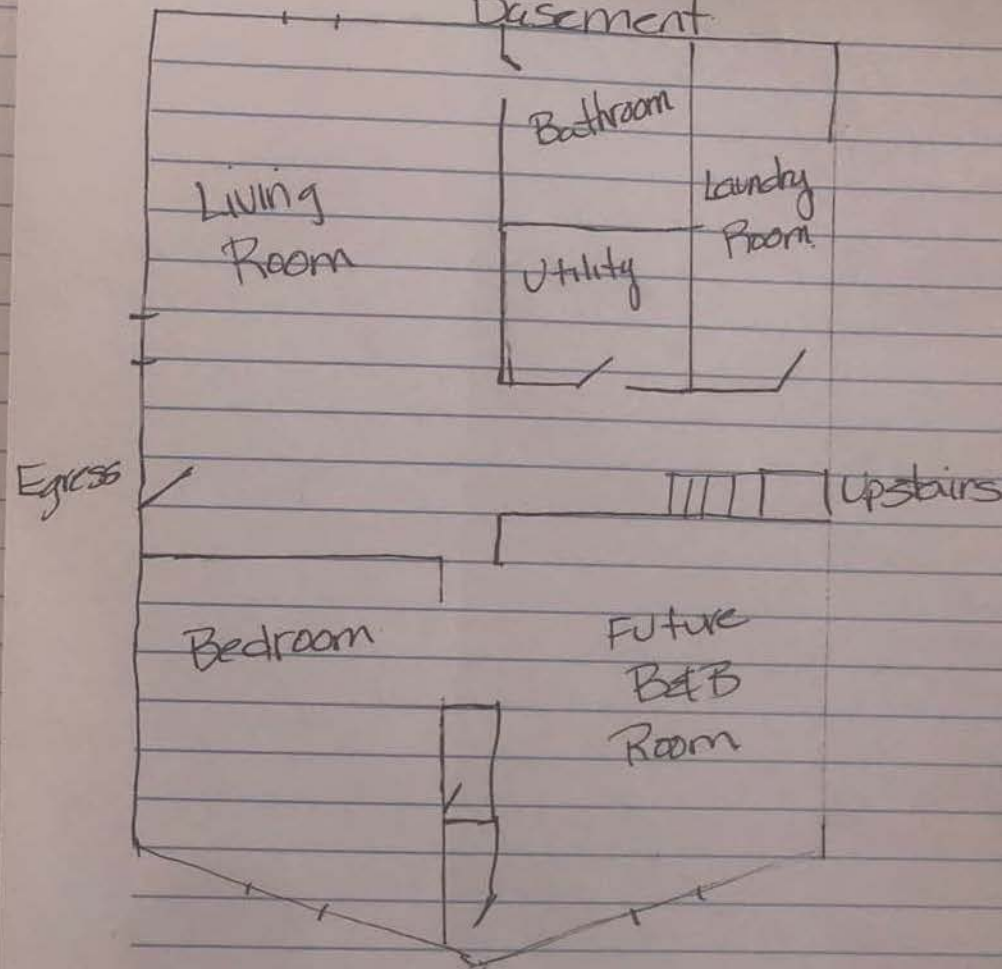 Basement
Bathroom
Living
Room
Laundry
Room
Utility
Egress
Upstairs
Bedroom
Future
B&B
Room